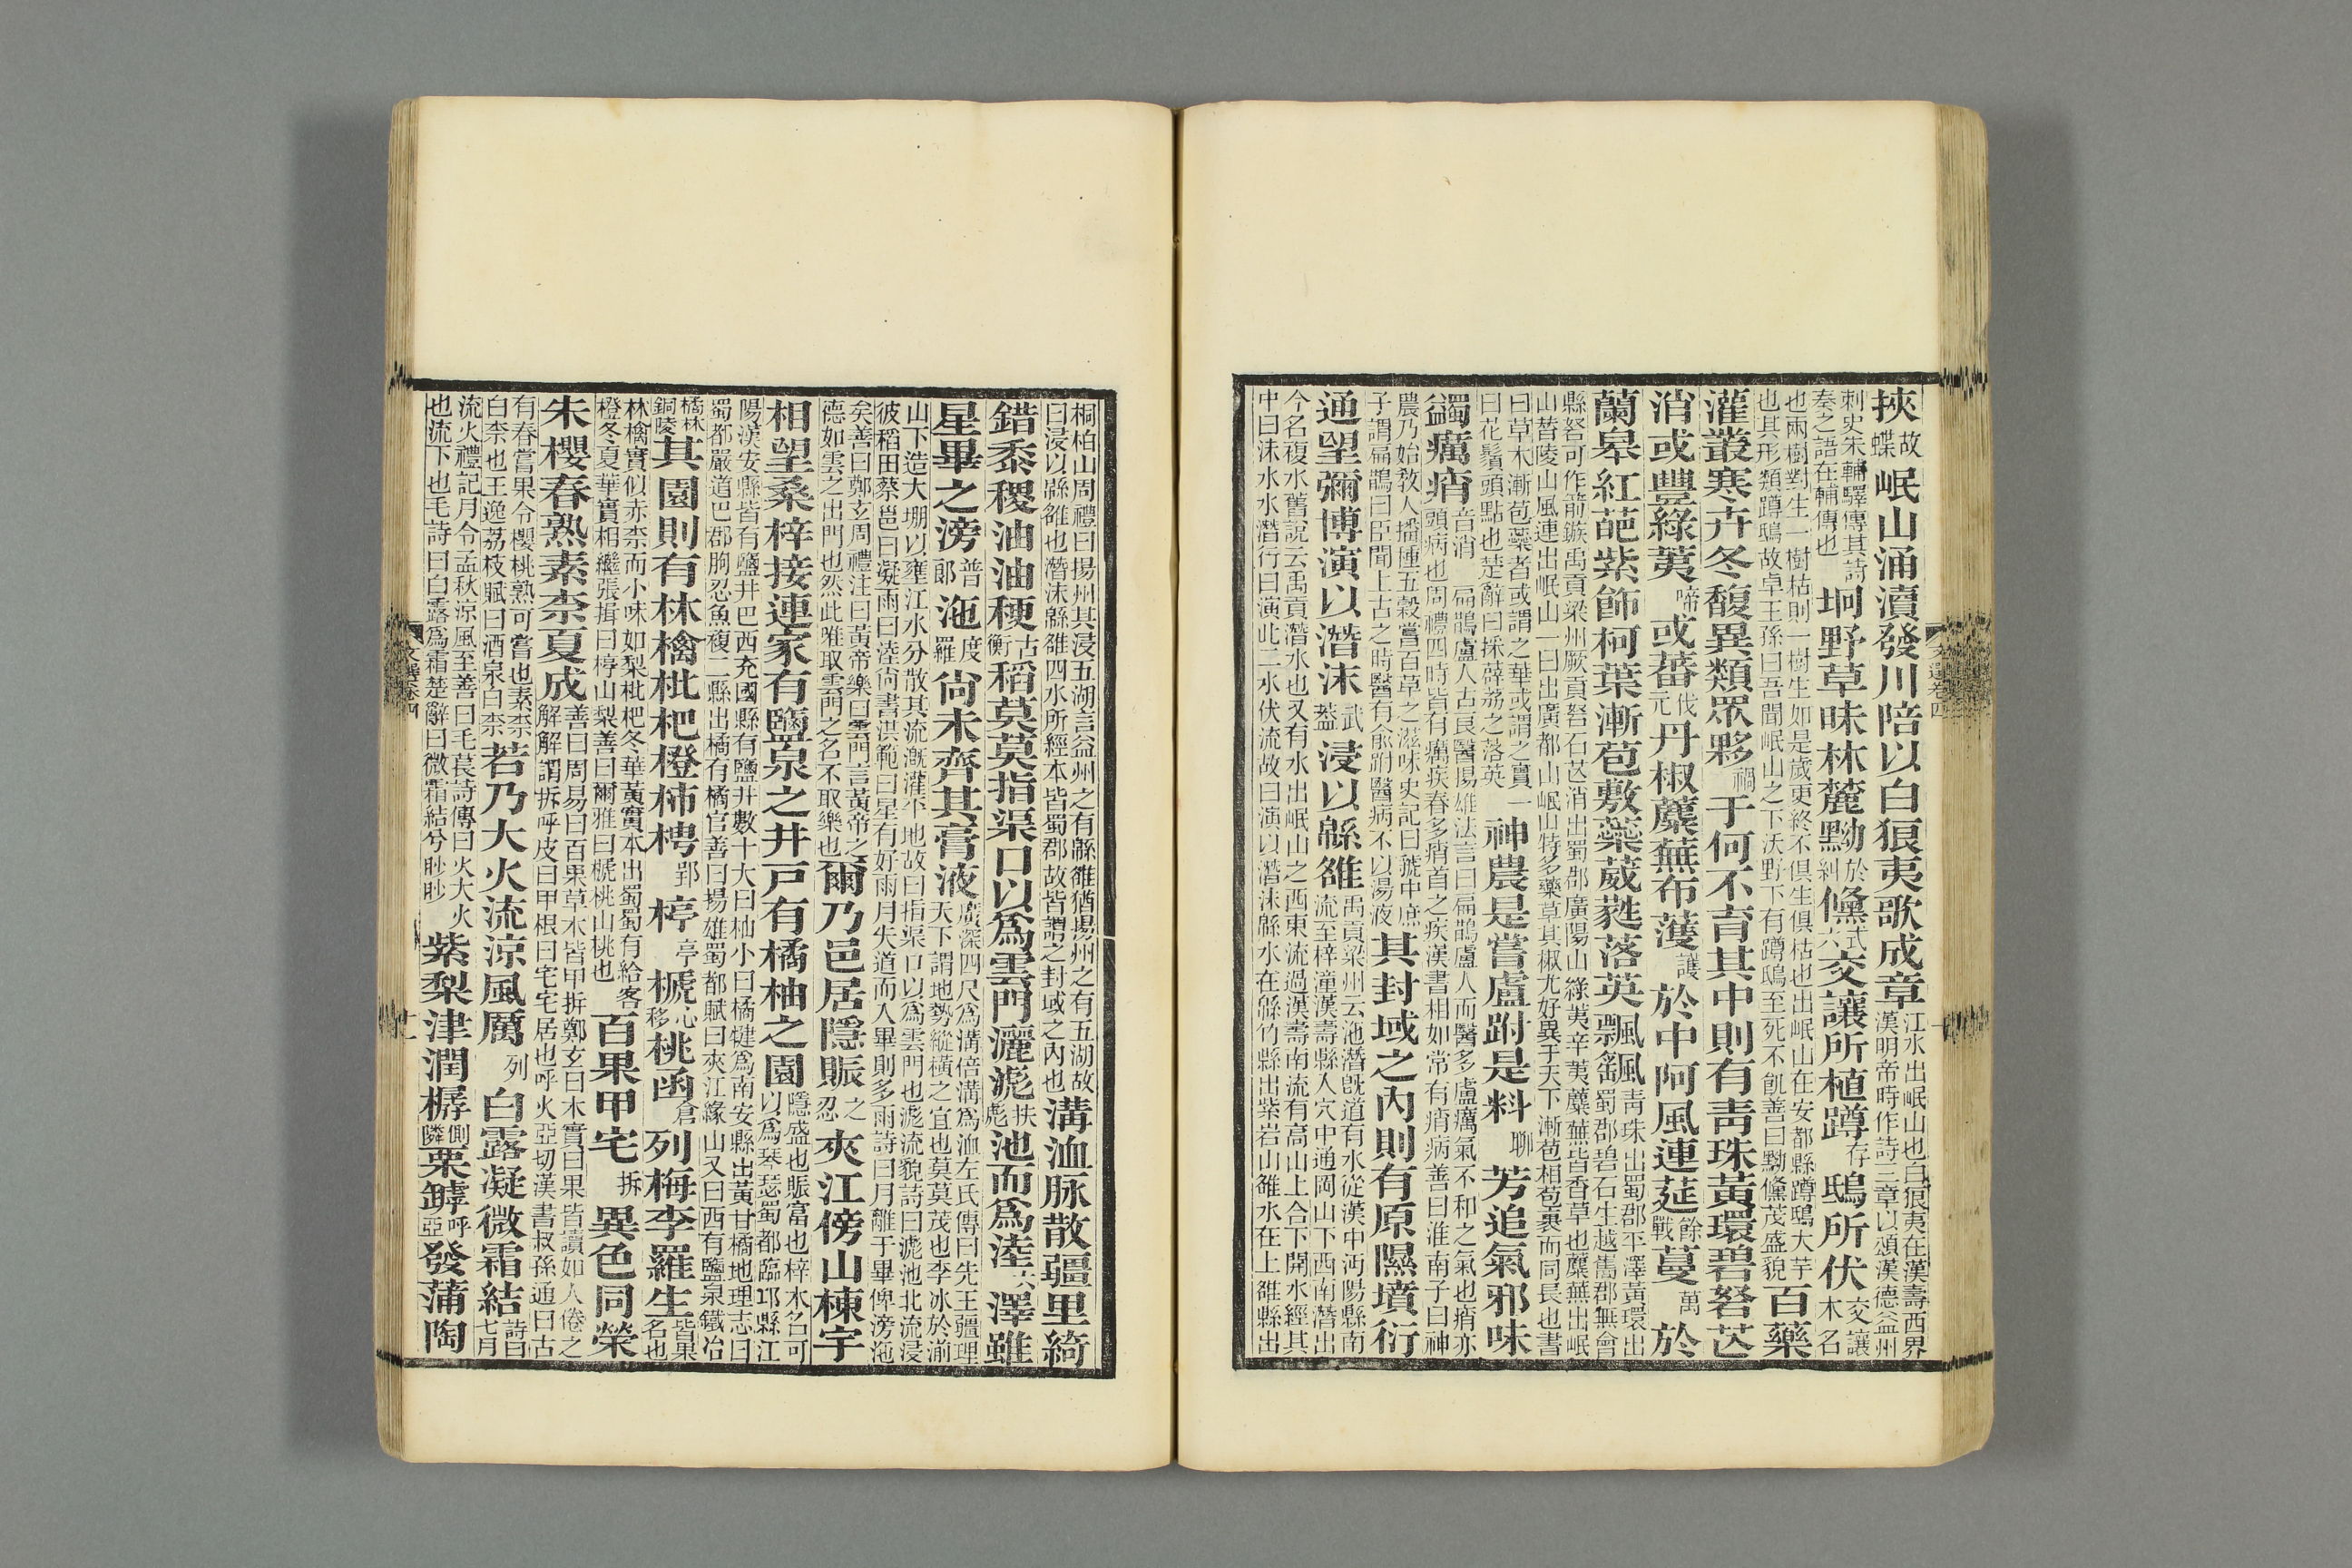 挾故蝶岷山涌瀆發川陪以白狼夷歌成章江水出岷山也白狼夷在漢壽西界漢明帝時作詩三章以頌漢德益州
刺史朱輔驛傳其詩奏之語在輔傳也坰野草昧林麓黝於糾儵式六交讓所植蹲存鴟所伏交讓木名
也兩樹對生一樹枯則一樹生如是歲更終不俱生俱枯也出岷山在安都縣蹲鴟大芋也其形類蹲鴟故卓王孫曰吾聞岷山之下沃野下有蹲鴟至死不飢善曰黝儵茂盛貌百藥
灌叢寒卉冬馥異類眾夥禍于何不育其中則有青珠黃環碧砮芒
消或豐綠荑啼或蕃伐元丹椒蘪蕪布濩護於中阿風連莚餘戰蔓萬於
蘭皋紅葩紫飾柯葉漸苞敷蘂葳蕤落英飄颻青珠出蜀郡平澤黃環出蜀郡碧石生越嶲郡無會
縣砮可作箭鏃禹貢梁州厥貢砮石芒消出蜀郡廣陽山綠荑辛荑蘪蕪皆香草也蘪蕪出岷山替陵山風連出岷山一曰出廣都山岷山特多藥草其椒尤好異于天下漸苞相苞裹而同長也書
曰草木漸苞蘂者或謂之華或謂之實一曰花鬚頭點也楚辭曰採薜荔之落英神農是嘗盧跗是料聊芳追氣邪味
蠲癘痟音消扁鵲盧人古良醫陽雄法言曰扁鵲盧人而醫多盧癘氣不和之氣也痟亦頭病也周禮四時皆有癘疾春多痟首之疾漢書相如常有痟病善曰淮南子曰神
農乃始敎人播種五穀嘗百草之滋味史記曰虢中庶子謂扁鵲曰臣聞上古之時醫有俞跗醫病不以湯液其封域之內則有原隰墳衍
通望彌博演以潛沬武葢浸以緜雒禹貢梁州云沲潛旣道有水從漢中沔陽縣南流至梓潼漢壽縣入穴中通岡山下西南潛出
今名複水舊說云禹貢潛水也又有水出岷山之西東流過漢壽南流有高山上合下開水經其中曰沬水水潛行曰演此二水伏流故曰演以潛沬緜水在緜竹縣出紫岩山雒水在上雒縣出
文選卷四
十
桐柏山周禮曰揚州其浸五湖言益州之有緜雒猶揚州之有五湖故曰浸以緜雒也潛沬緜雒四水所經本皆蜀郡故皆謂之封域之內也溝洫脉散疆里綺
錯黍稷油油粳古衡稻莫莫指渠口以爲雲門灑滮扶彪池而爲陸六澤雖
星畢之滂普郎沲度羅尙未齊其膏液廣深四尺爲溝倍溝爲洫左氏傳曰先王疆理天下謂地勢縱橫之宜也莫莫茂也李冰於湔
山下造大堋以壅江水分散其流漑灌平地故曰指渠口以爲雲門也滮流貌詩曰滮池北流浸彼稻田蔡邕曰凝雨曰陸尙書洪範曰星有好雨月失道而入畢則多雨詩曰月離于畢俾滂沲
矣善曰鄭玄周禮注曰黃帝樂曰雲門言黃帝之德如雲之出門也然此唯取雲門之名不取樂也爾乃邑居隱賑之忍夾江傍山棟宇
相望桑梓接連家有鹽泉之井戶有橘柚之園隱盛也賑富也梓木名可以爲琴瑟蜀都臨卭縣江
陽漢安縣皆有鹽井巴西充國縣有鹽井數十大曰柚小曰橘犍爲南安縣出黃甘橘地理志曰蜀都嚴道巴郡朐忍魚複二縣出橘有橘官善曰揚雄蜀都賦曰夾江緣山又曰西有鹽泉鐵冶
橘林銅陵其園則有林檎枇杷橙柹梬郢楟亭榹心移桃函倉列梅李羅生皆果名也
林檎實似赤柰而小味如梨枇杷冬華黃實本出蜀蜀有給客橙冬夏華實相繼張揖曰楟山梨善曰爾雅曰榹桃山桃也百果甲宅拆異色同榮
朱櫻春熟素柰夏成善曰周易曰百果草木皆甲拆鄭玄曰木實曰果皆讀如人倦之解解謂拆呼皮曰甲根曰宅宅居也呼火亞切漢書叔孫通曰古
有春嘗果令櫻桃熟可嘗也素柰白柰也王逸荔枝賦曰酒泉白柰若乃大火流涼風厲列白露凝微霜結詩曰七月
流火禮記月令孟秋涼風至善曰毛萇詩傳曰火大火也流下也毛詩曰白露爲霜楚辭曰微霜結兮眇眇紫梨津潤樼側隣栗罅呼亞發蒲陶
文選卷四